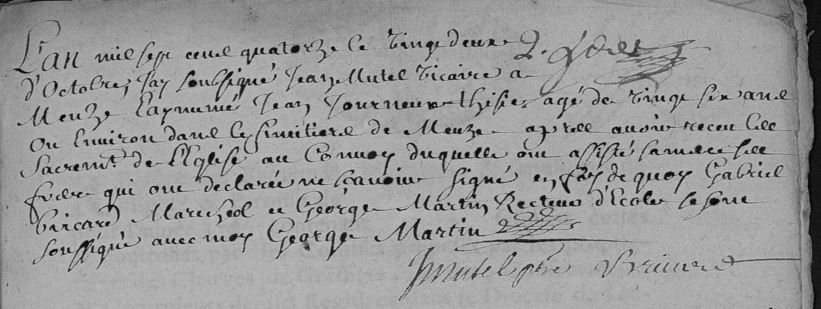 L'an mil sept cent quatorze le vingt deux
d'Octobre, J'ay soubsigné Jean Mutel Vicaire a
Meuze Inhumé Jean Journeux thisier agé de vingt six ans
ou Environ dans le Simitiere de Meuze apres avoir receu les
Sacremts de l'Eglise au Convoy duquelle ont assisté sa mere ses
freres qui ont declarée ne scavoir signé en foy de quoy Gabriel
Bricard Marechal et George Martin Recteur d'Ecole se sont
soussigné avec moy George Martin
JMutel ptre Briccard